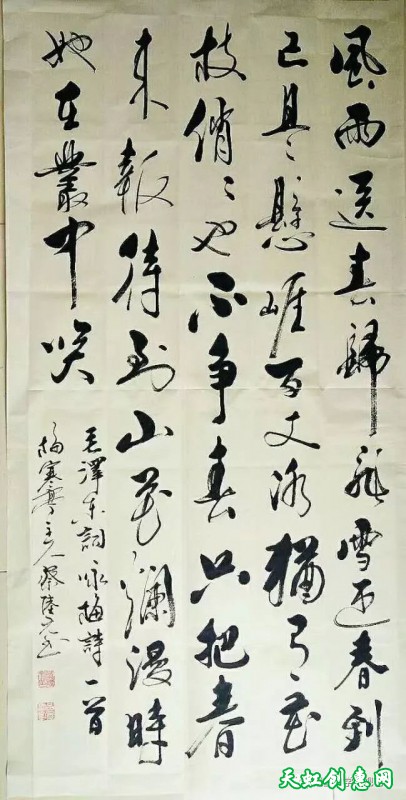 風雨送春歸飛雪迎春到
已是懸崖百丈冰猶有花
枝俏〻也不争春只把春
来報待到山花爛漫時
她在叢中咲
毛澤东詞咏梅詩一首
梅寒齋主人蔡陸
天虹创意网